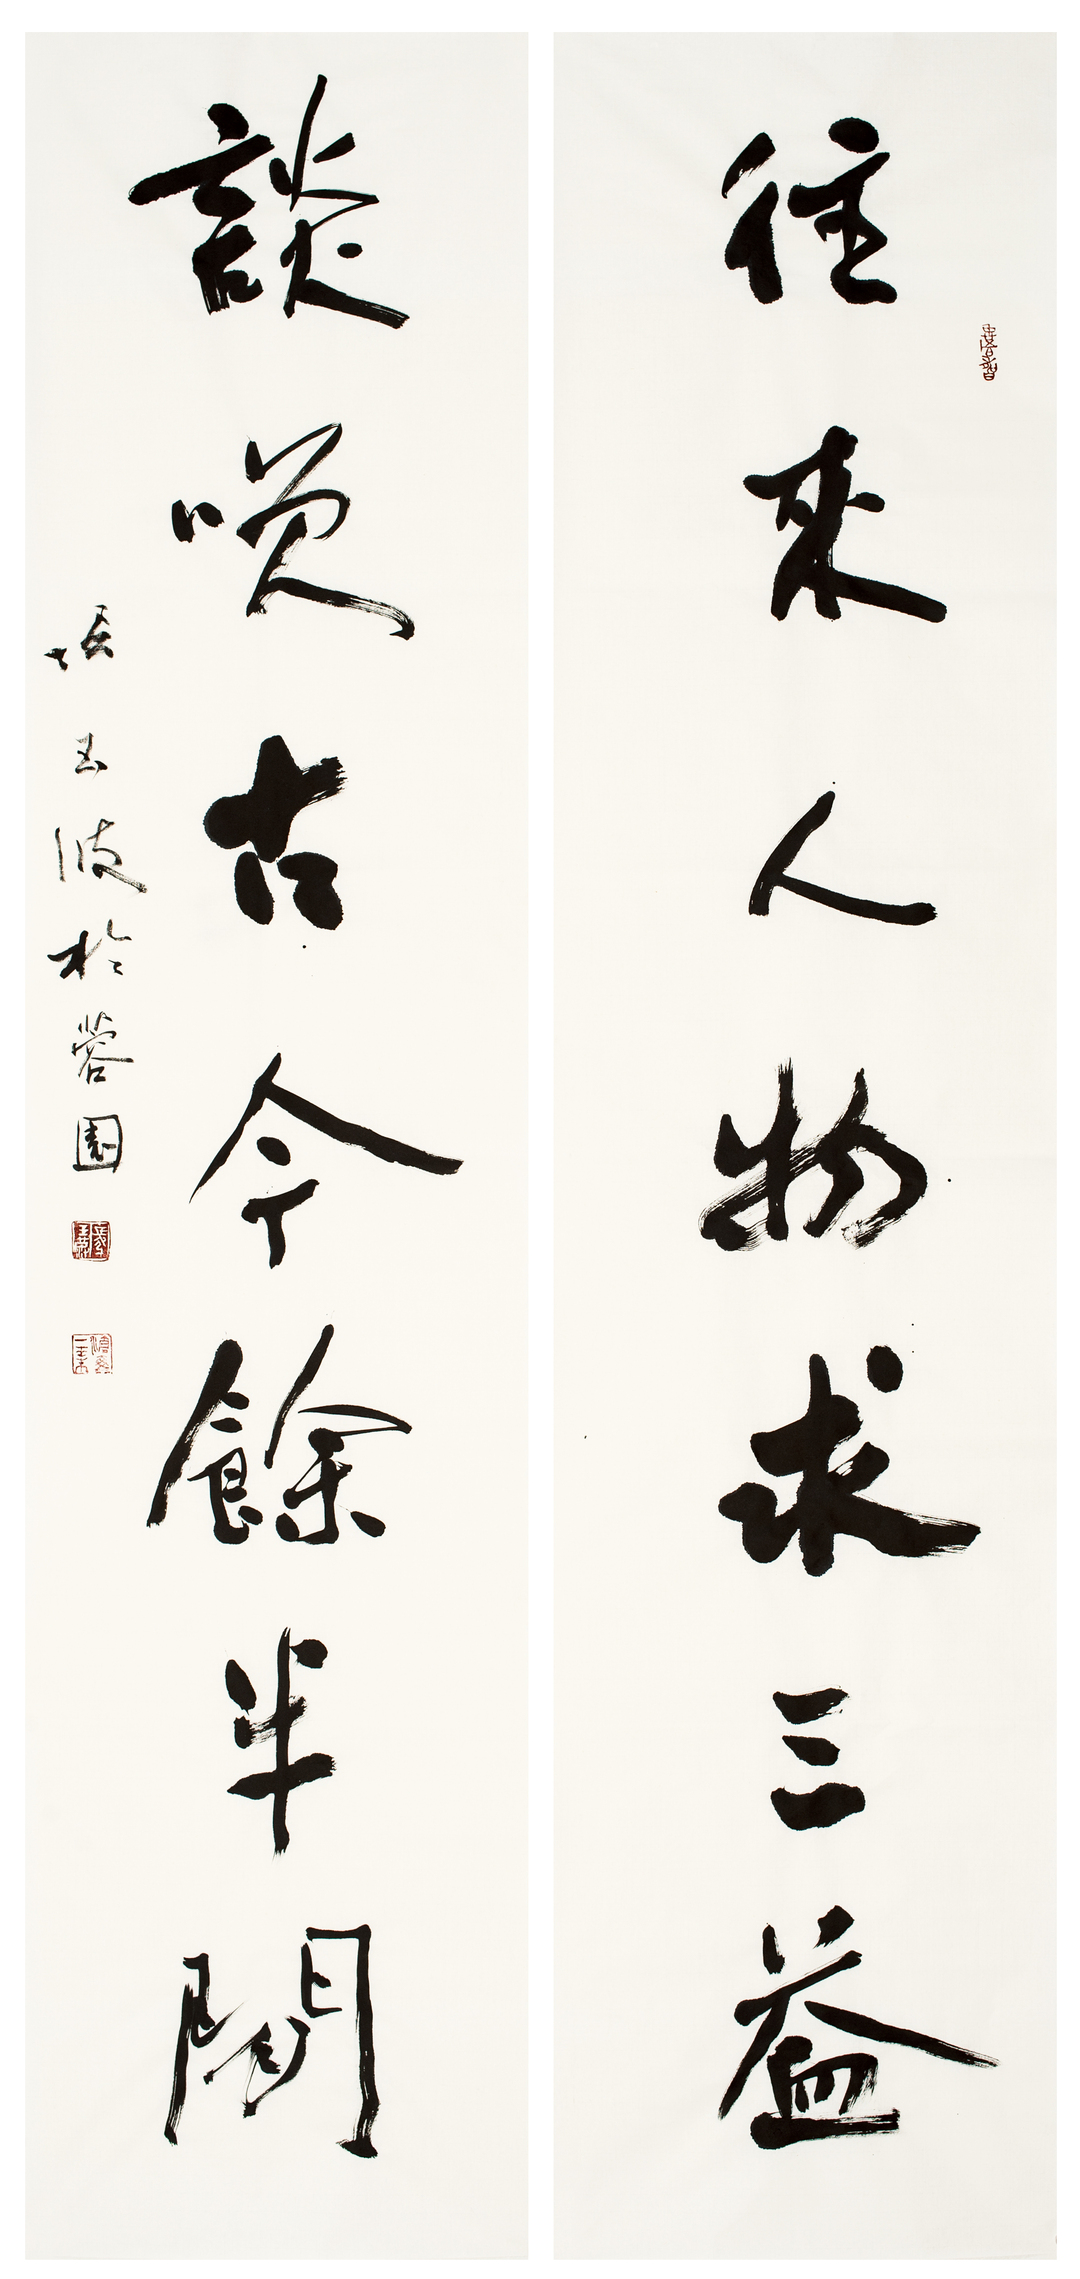 往來人物求三益
談笑古今餘半閒
玉波於蓉園